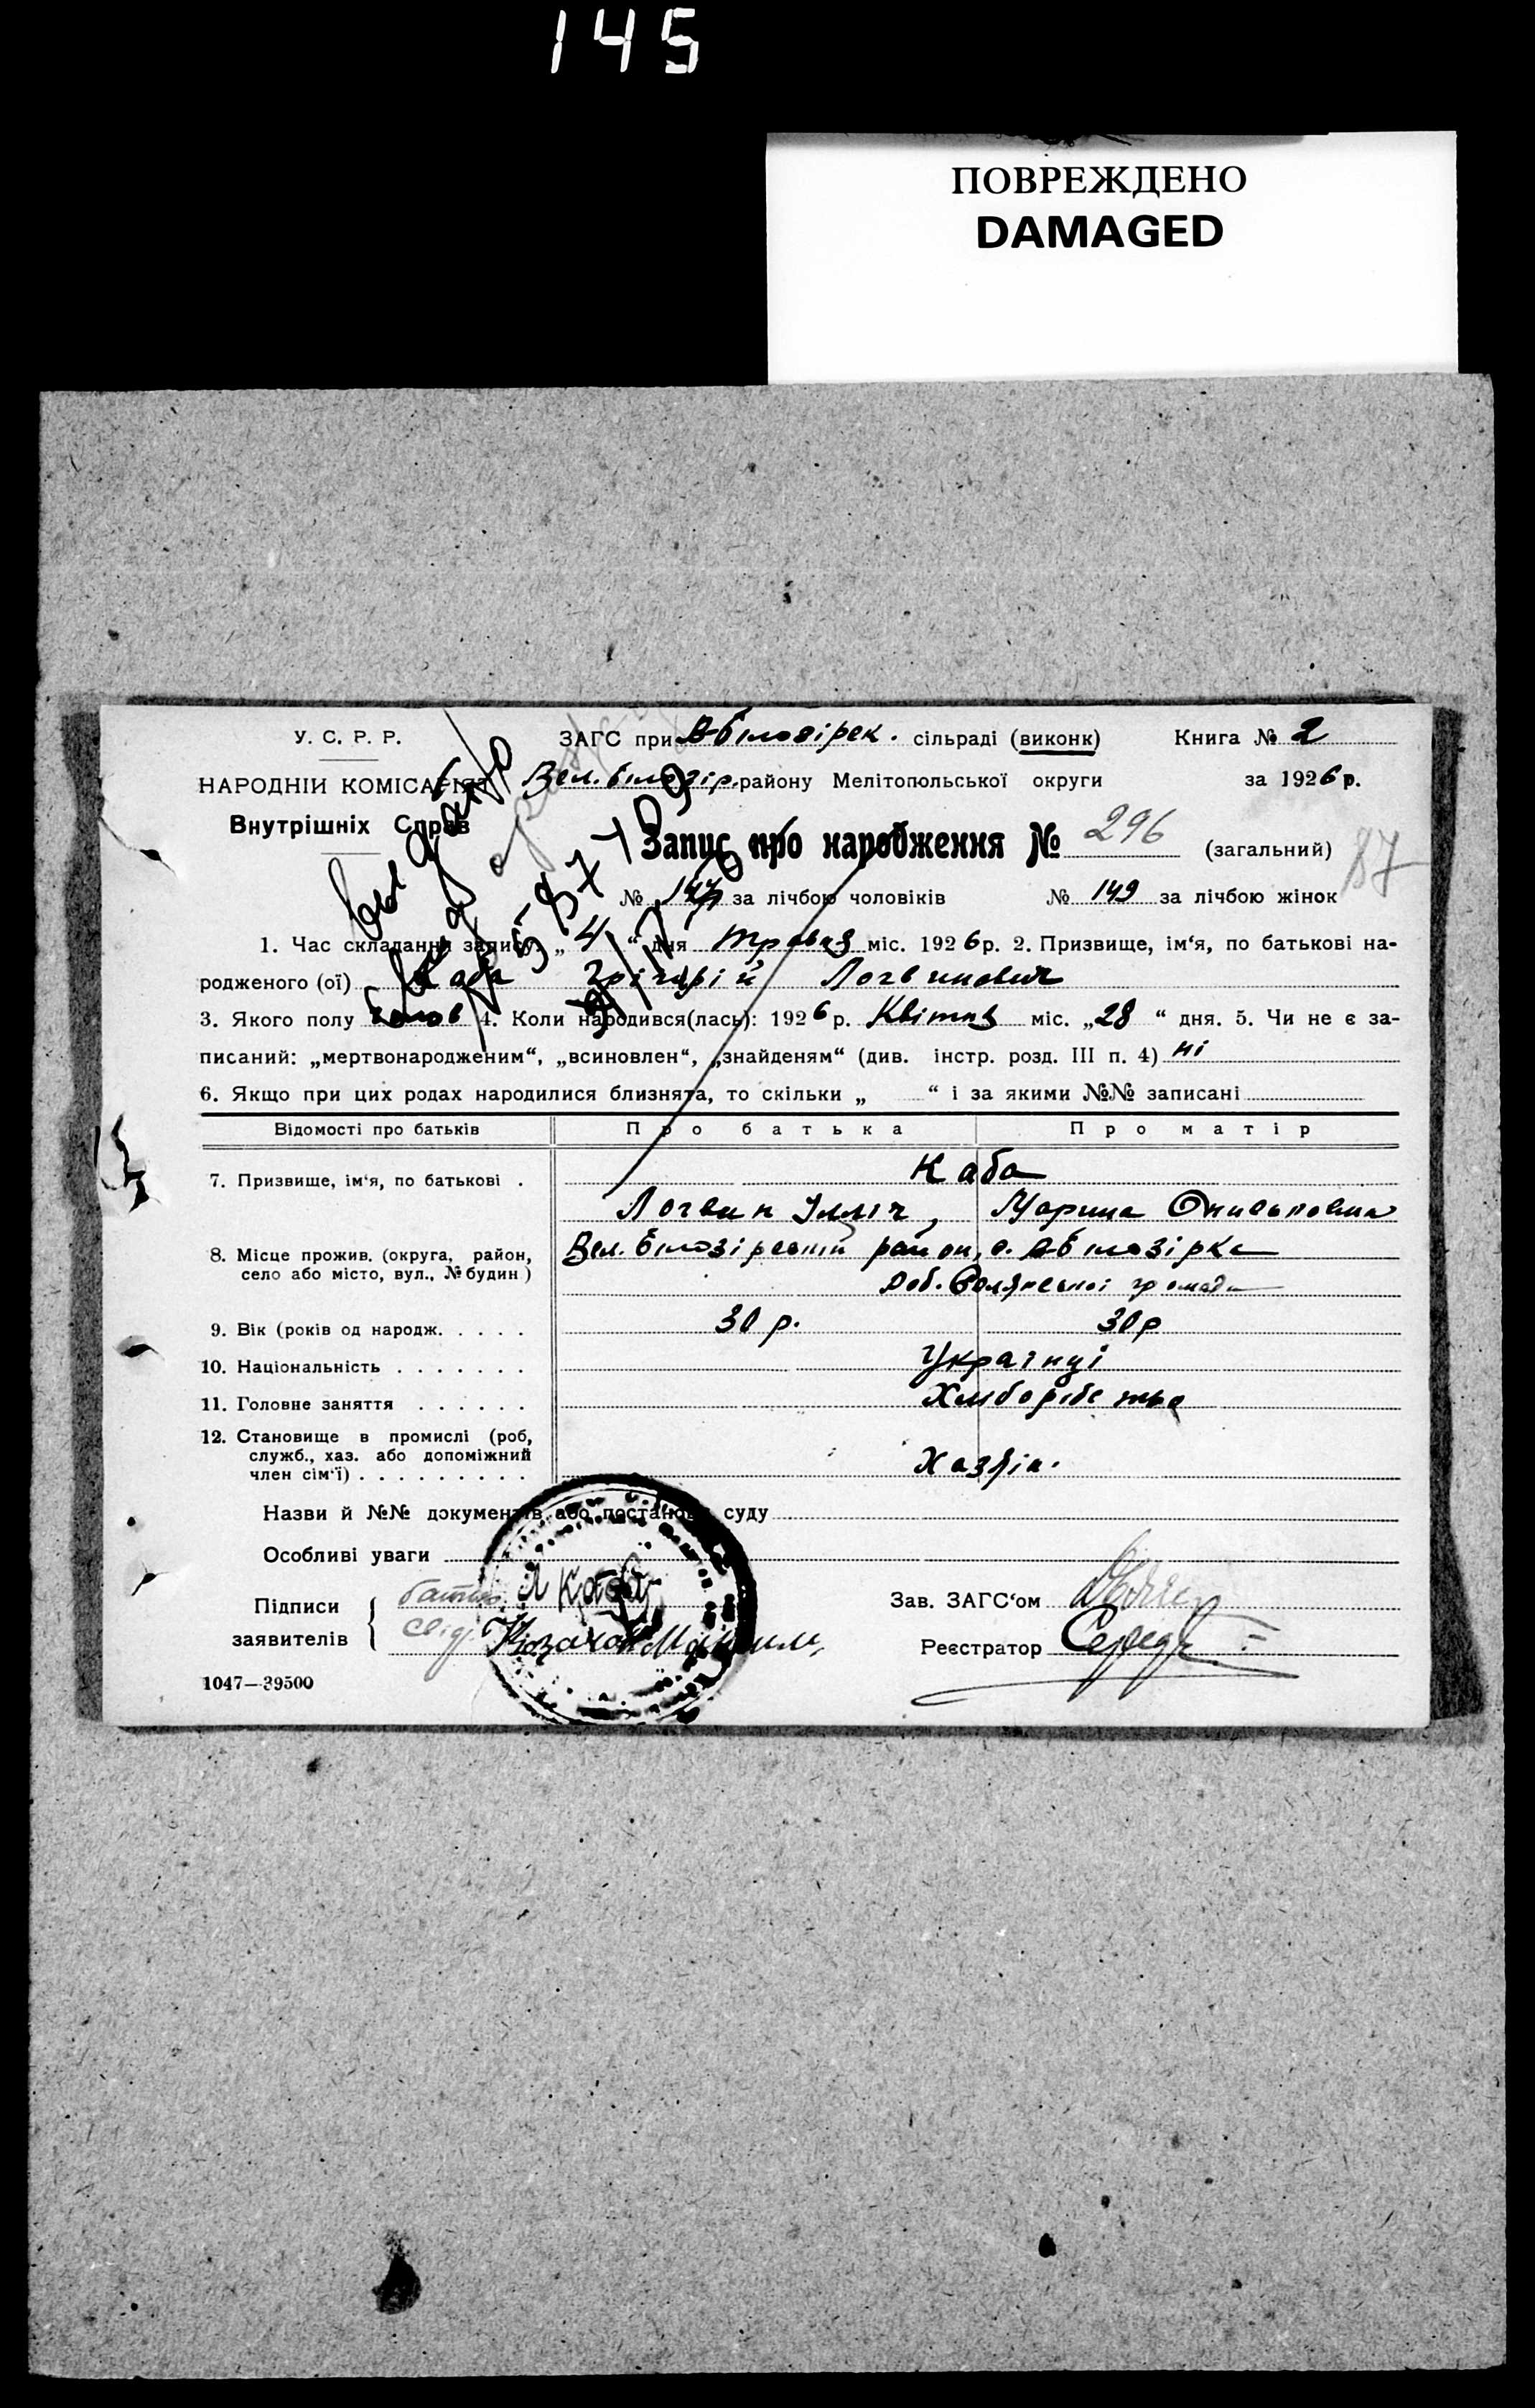 145
ПОВРЕЖДЕНО
DAMAGED
У. С. Р. Р.
НАРОДНІЙ КОМІСАРІЯТ
Внутрішніх Справ
ЗАГС при В-білозірск. сільраді (виконк)
Книга № 2
Вел. білозір. району Мелітопольської округи
за 1926 р.
Запис про народження № 296 (загальний)
87
№ 147 за лічбою чоловіків № 149 за лічбою жінок
1. Час складання запису: „ 4 “ дня травня міс. 1926 р. 2. Призвище, ім‘я, по батькові на-
родженого (ої) Каба Грігорій Логвинович
3. Якого полу чолов 4. Коли народився(лась): 1926 р. Квітня міс. „28 “ дня. 5. Чи не є за-
писаний: „мертвонародженим“, „всиновлен“, „знайденям“ (див. інстр. розд. III п. 4) ні
6. Якщо при цих родах народилися близнята, то скільки „ “ і за якими №№ записані
Відомості про батьків
Про батька
Про матір
7. Призвище, ім‘я, по батькові .
Каба
Логвин Ілліч, Марина
8. Місце прожив. (округа, район,
село або місто, вул., № будин)
Вел. білозірський район, с. Вбілозірка
громади
9. Вік (років од народж. . . . .
30 р.
30 р
10. Національність . . . . . . .
Українці
11. Головне заняття . . . . . .
Хліборобство
12. Становище в промислі (роб,
служб., хаз. або допоміжний
член сім‘ї) . . . . . . . . .
Хазяін.
Назви й №№ документів або постанов суду
Особливі уваги
Підписи
заявителів
батько Л Каба
свід.
Зав. ЗАГС‘ом
Реєстратор
1047—39500